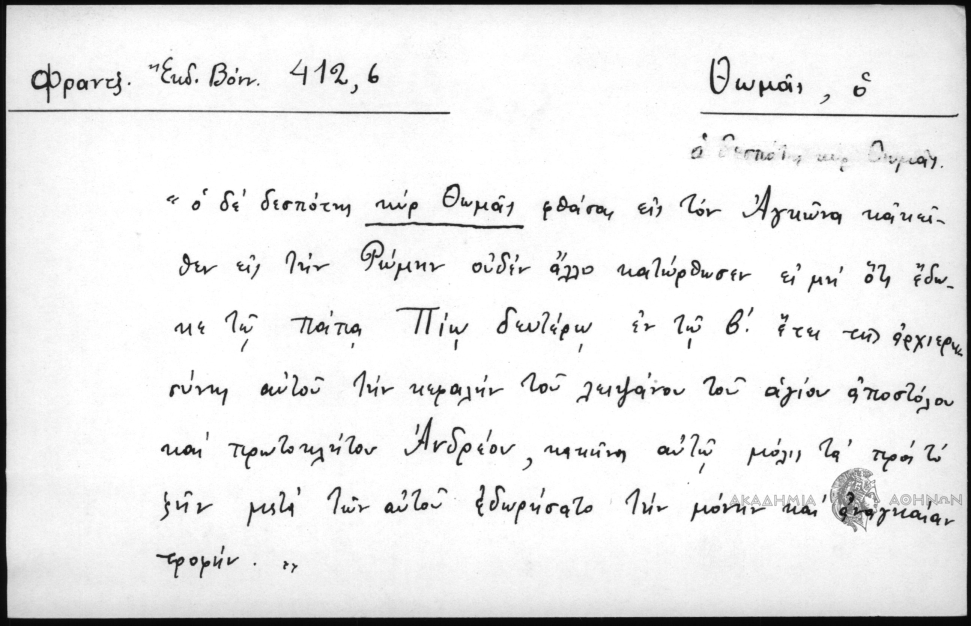 Φραντζ. Ἔκδ. Βόνν. 412,6
Θωμᾶς, ὁ
ὁ δεσπότης κὺρ Θωμᾶς.
"ὁ δέ δεσπότης κύρ Θωμᾶς φθάσας εἰς τόν Ἀγκῶνα κἀκεῖ-
θεν εἰς τήν Ρώμην οὐδέν ἄλλο κατώρθωσεν εἰ μή ὅτι ἔδω-
κε τῷ πάπᾳ Πίῳ δευτέρῳ ἐν τῷ β΄. ἔτει τῆς ἀρχιερω-
σύνης αὐτοῦ τήν κεφαλήν τοῦ λειψάνου τοῦ ἁγίου ἀποστόλου
καί πρωτοκλήτου Ἀνδρέου, αὐτῷ μόλις τά πρός τό
ζῆν μετά τῶν αὐτοῦ ἐδωρήσατο τήν μόνην καί ἀναγκαίαν
τροφήν. "
ΑΚΑΔΗΜΙΑ ΑΘΗΝΩΝ